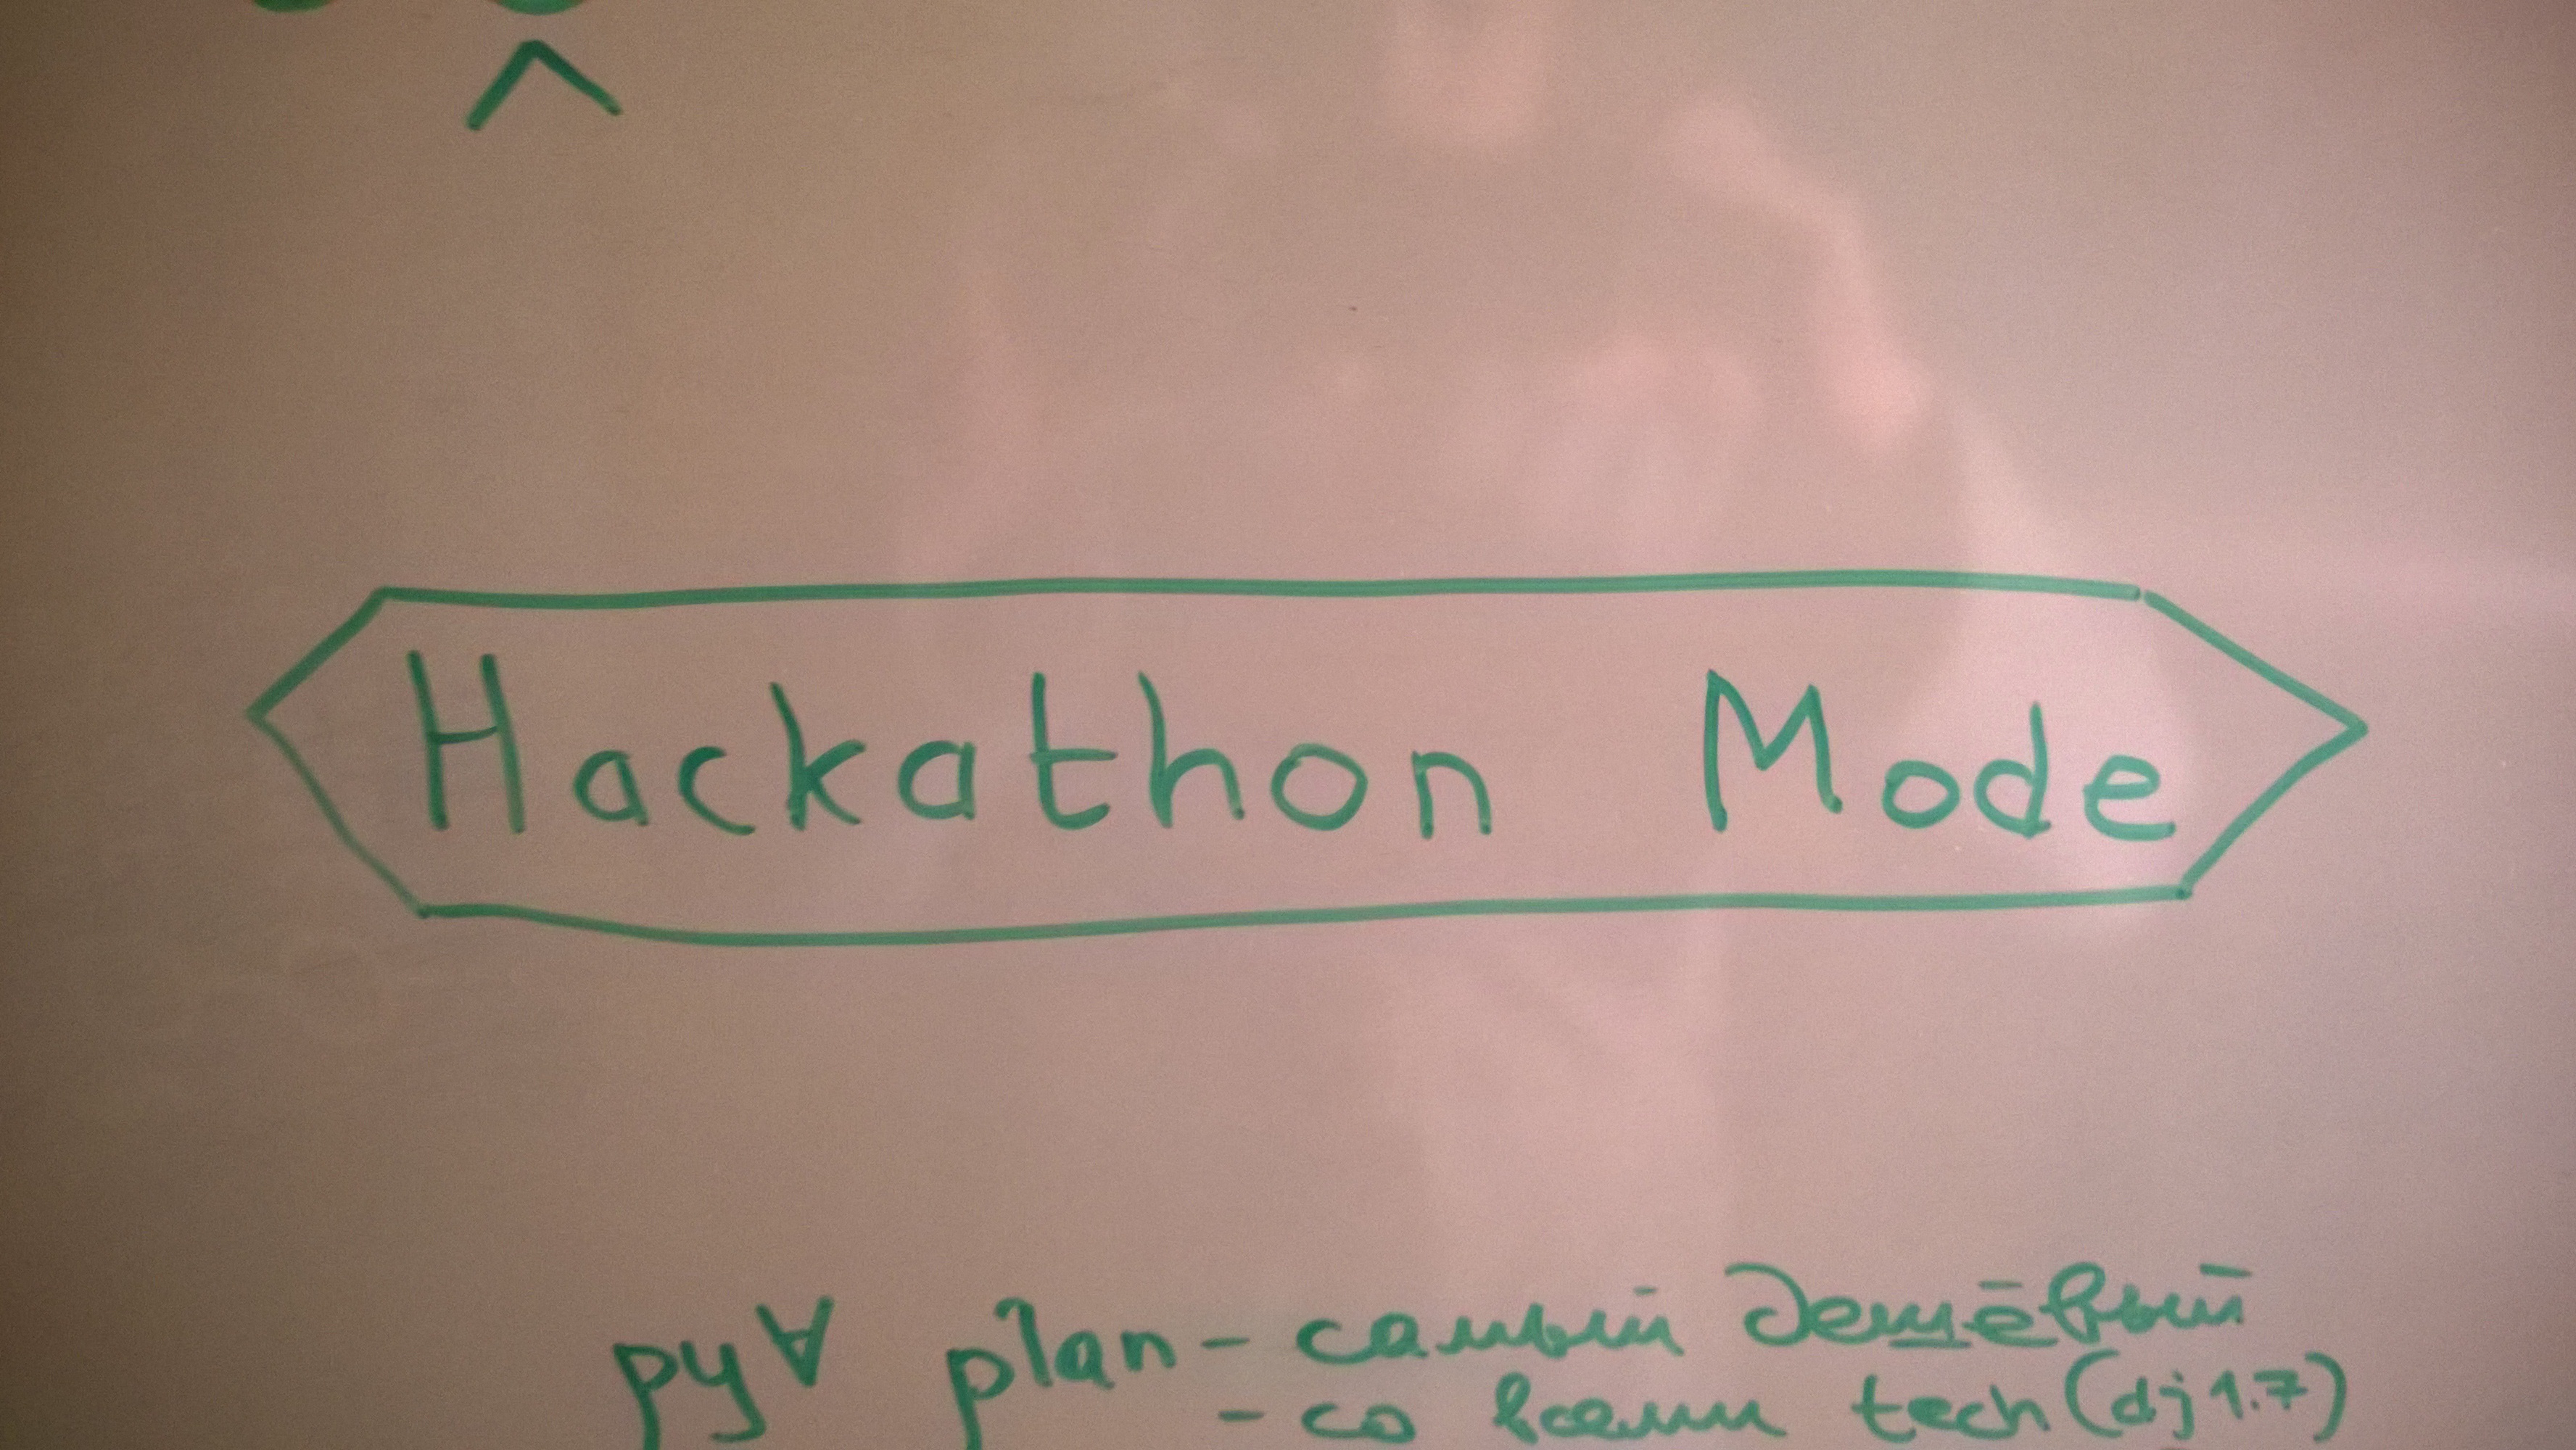 Hackathon Mode
py∀ plan - самый дешёвый
- со всеми tech (dj 1.7)